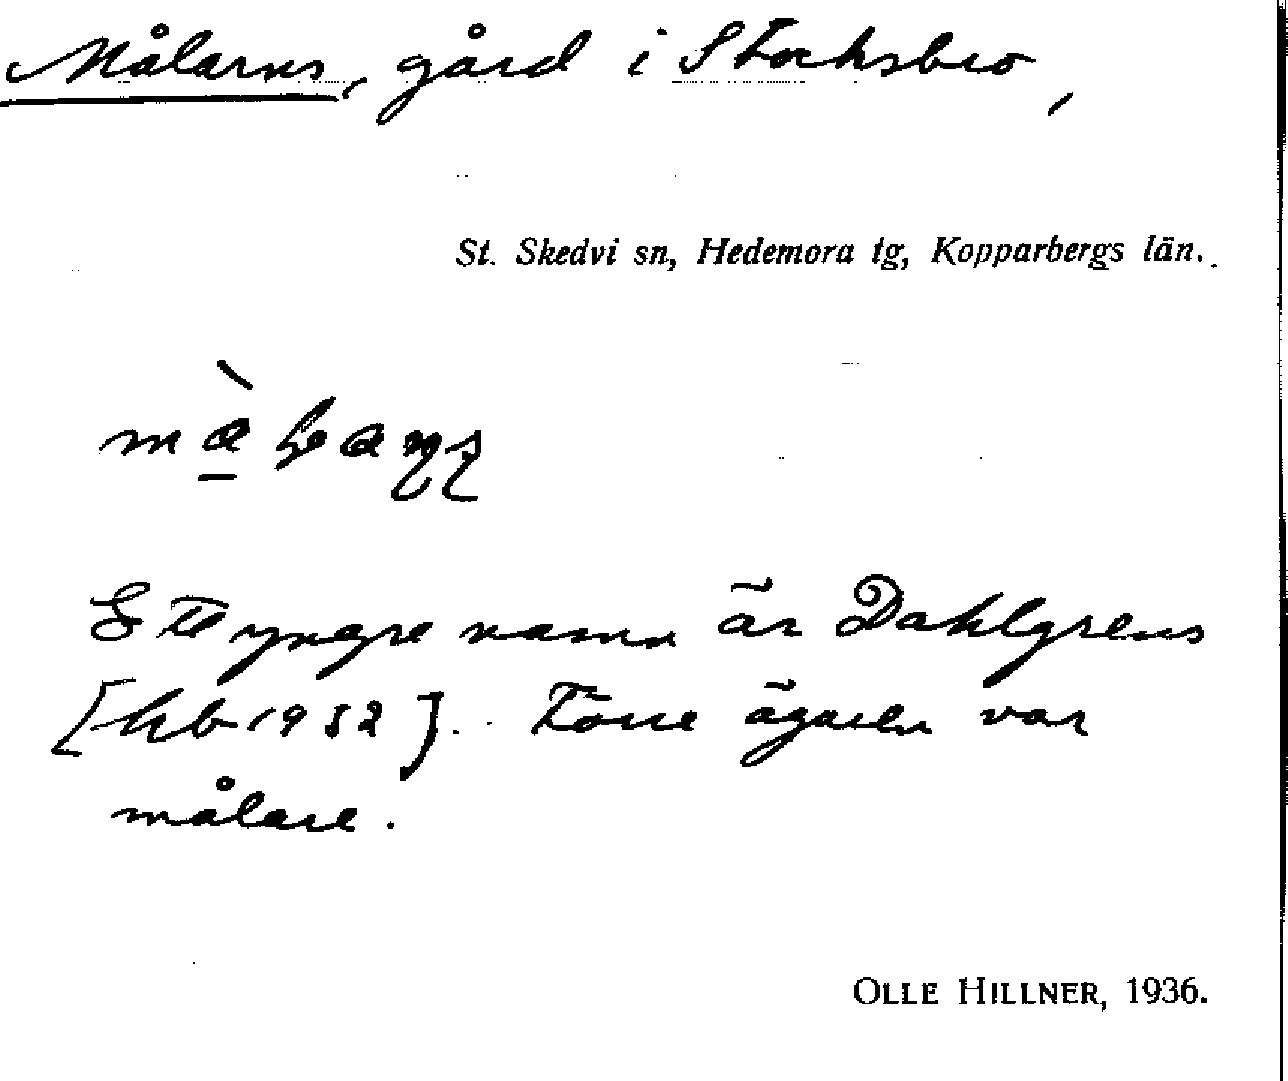 Målarns, gård i Stocksbro,
St. Skedvi sn, Hedemora tg, Kopparbergs län.
Ett yngre namn är Dahlgrens
[hb 1952]. Förre ägaren var
målare.
OLLE HILLNER, 1936.